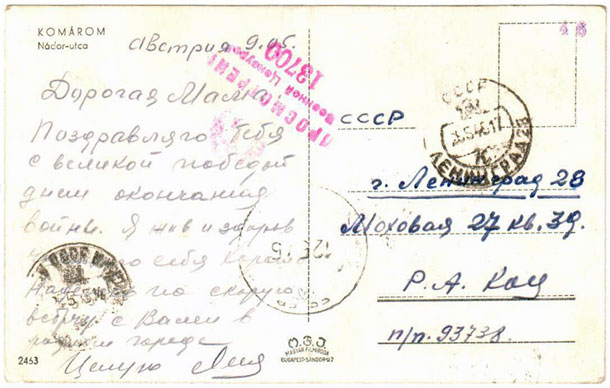 KOMÁROM
Nádor-utca
Австрия 9.05.
Дорогая Мама
Поздравляю тебя
с великой победой
днем окончания
войны. Я жив и здоров
себя
на скорую
встречу с Вами в
родном городе
Целую
2463
ПРОСМОТРЕНО
Военной Цензурой
13700
СССР
СССР
ЛЕНИНГРАД 28
г. Ленинград 28
Моховая 27 кв. 39.
Р. А. Кац
п/п. 93738.
MAGYAR FILMIRODA
BUDAPEST-SÁNDOR-U.7